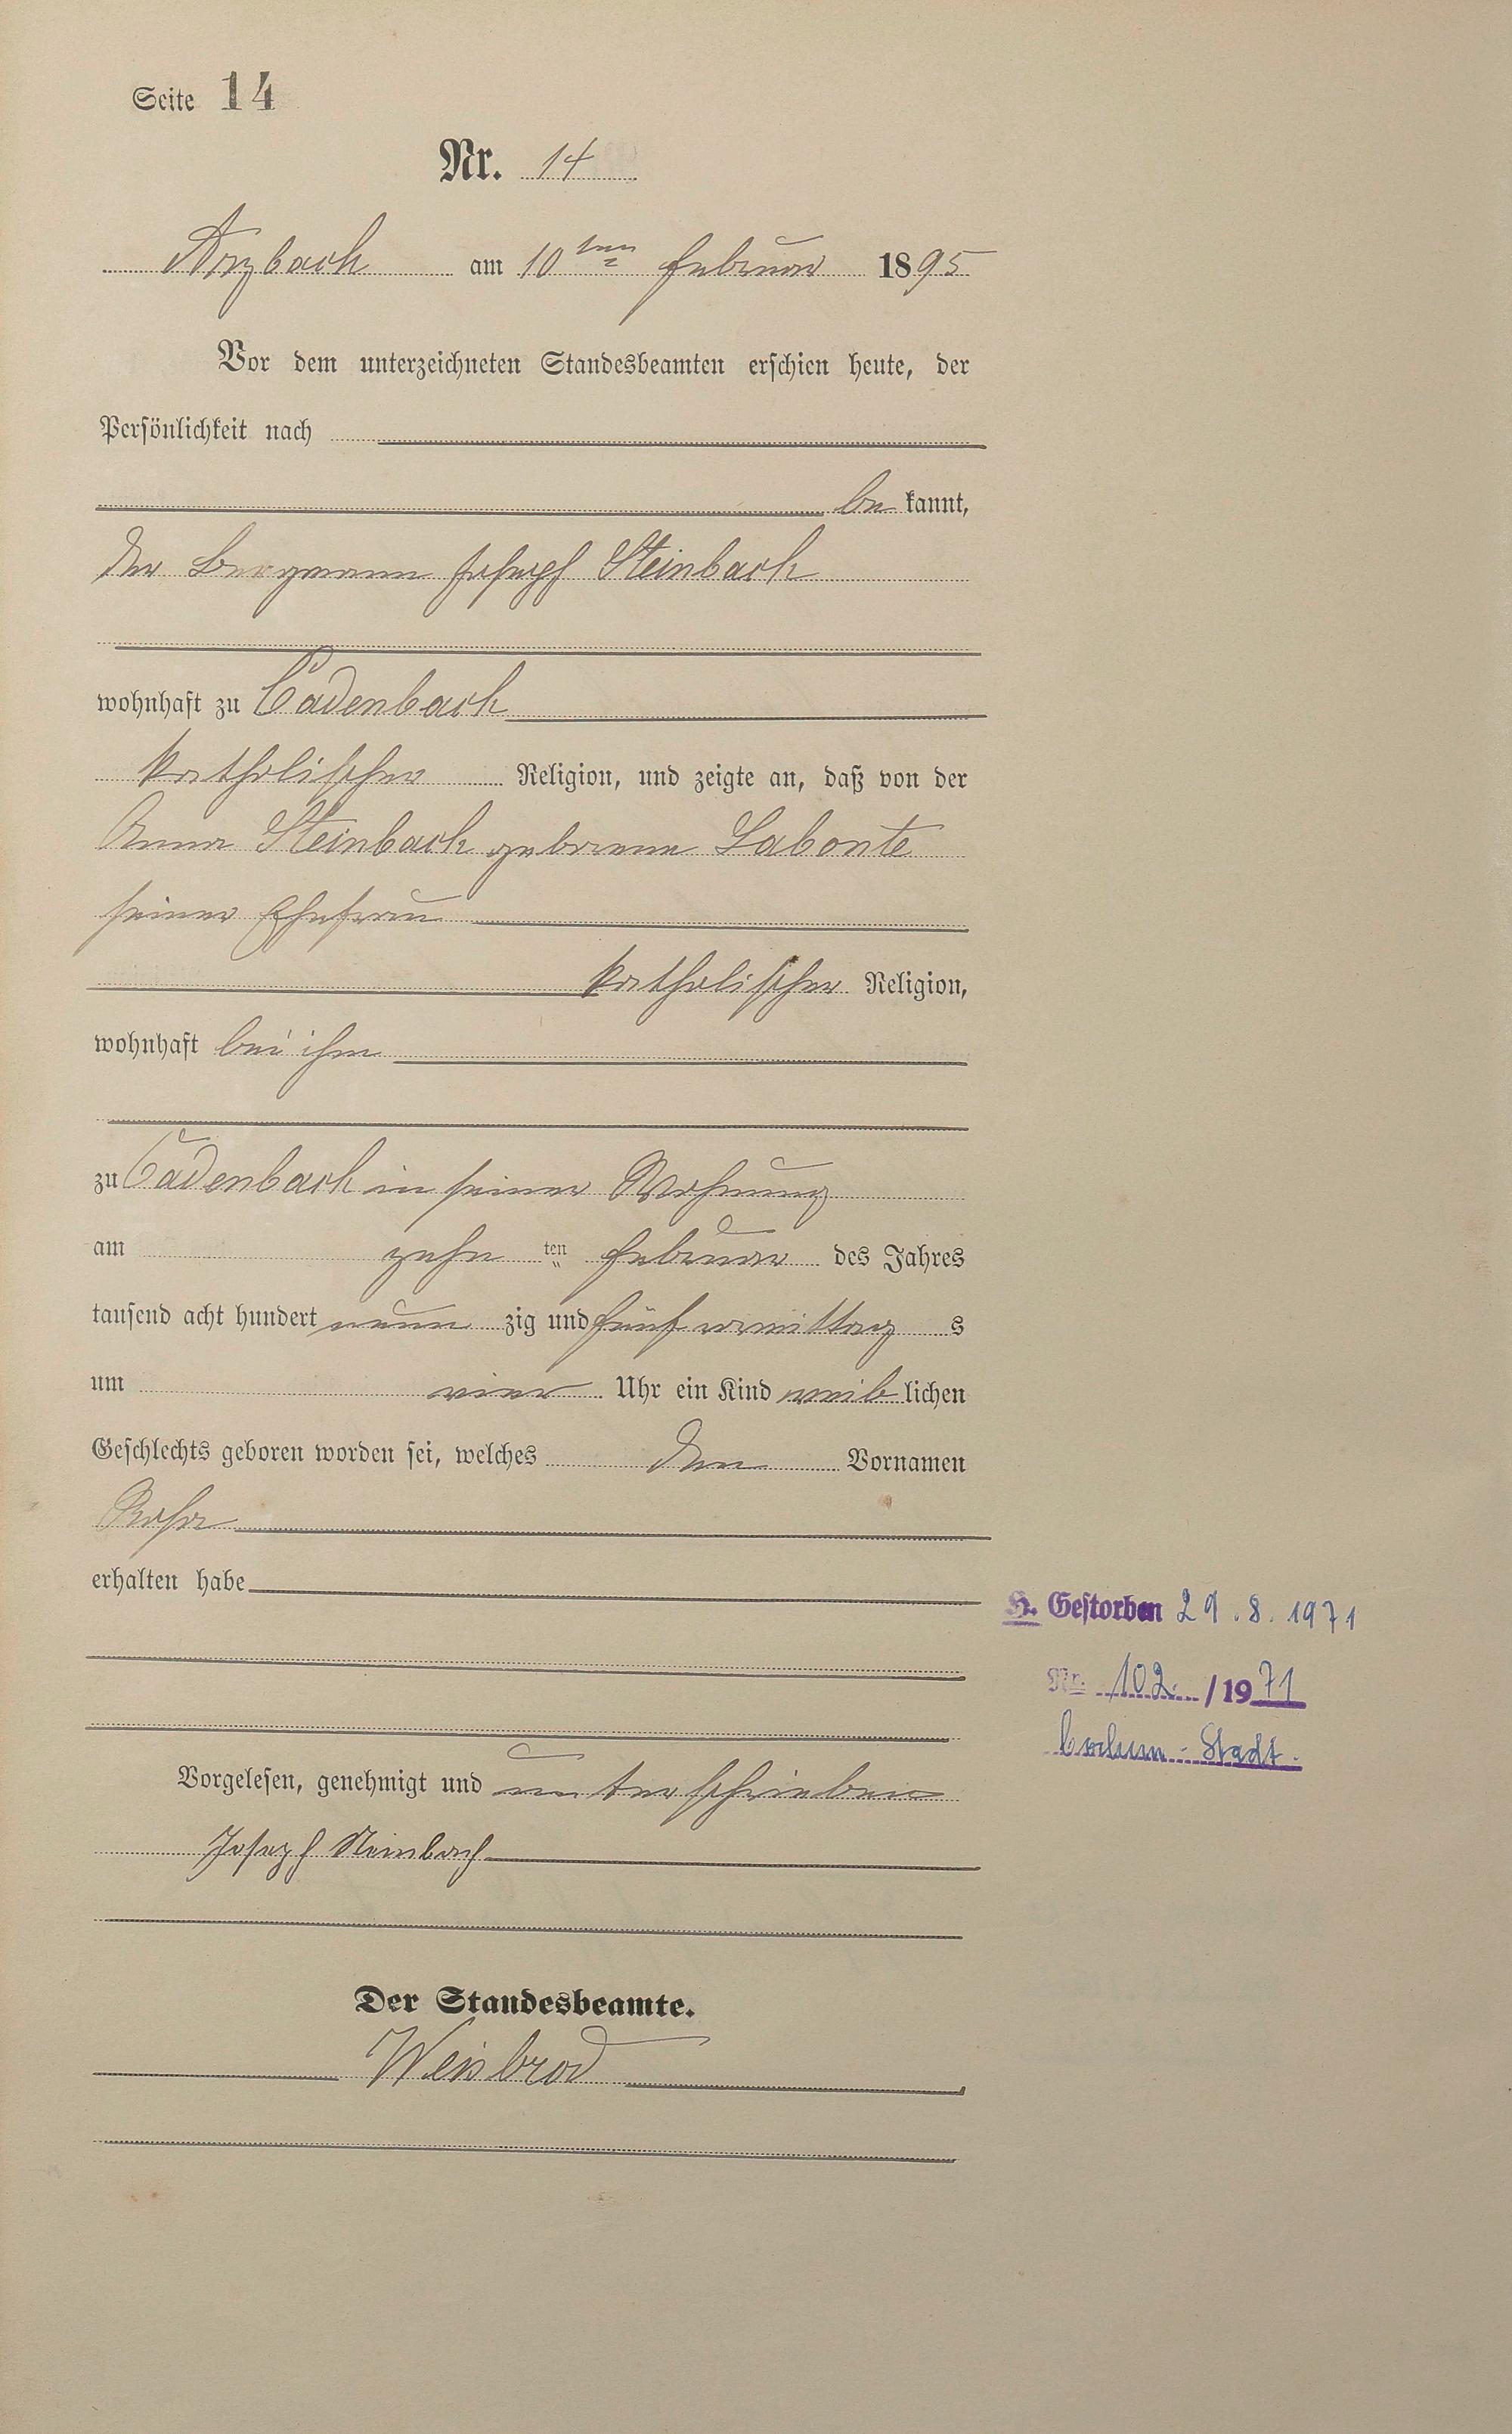 Seite 14
Nr. 14
Arzbach am 10ten Februar 1895
Vor dem unterzeichneten Standesbeamten erschien heute, der
Persönlichkeit nach
be kannt,
der Bergmann Joseph Steinbach
wohnhaft zu Cadenbach
katholischer Religion, und zeigte an, daß von der
Anna Steinbach geborene Labonte
seiner Ehefrau
katholischer Religion,
wohnhaft bei ihm
zu Cadenbach in seiner Wohnung
am zehn ten Februar des Jahres
tausend acht hundert neun zig und fünf vormittag s
um vier Uhr ein Kind weib lichen
Geschlechts geboren worden sei, welches den Vornamen
Rosa
erhalten habe
Vorgelesen, genehmigt und unterschrieben
Joseph Steinbach
Der Standesbeamte.
Weisbrod
H. Gestorben 29.8.1971
Nr. 102 / 1971
Bochum-Stadt.